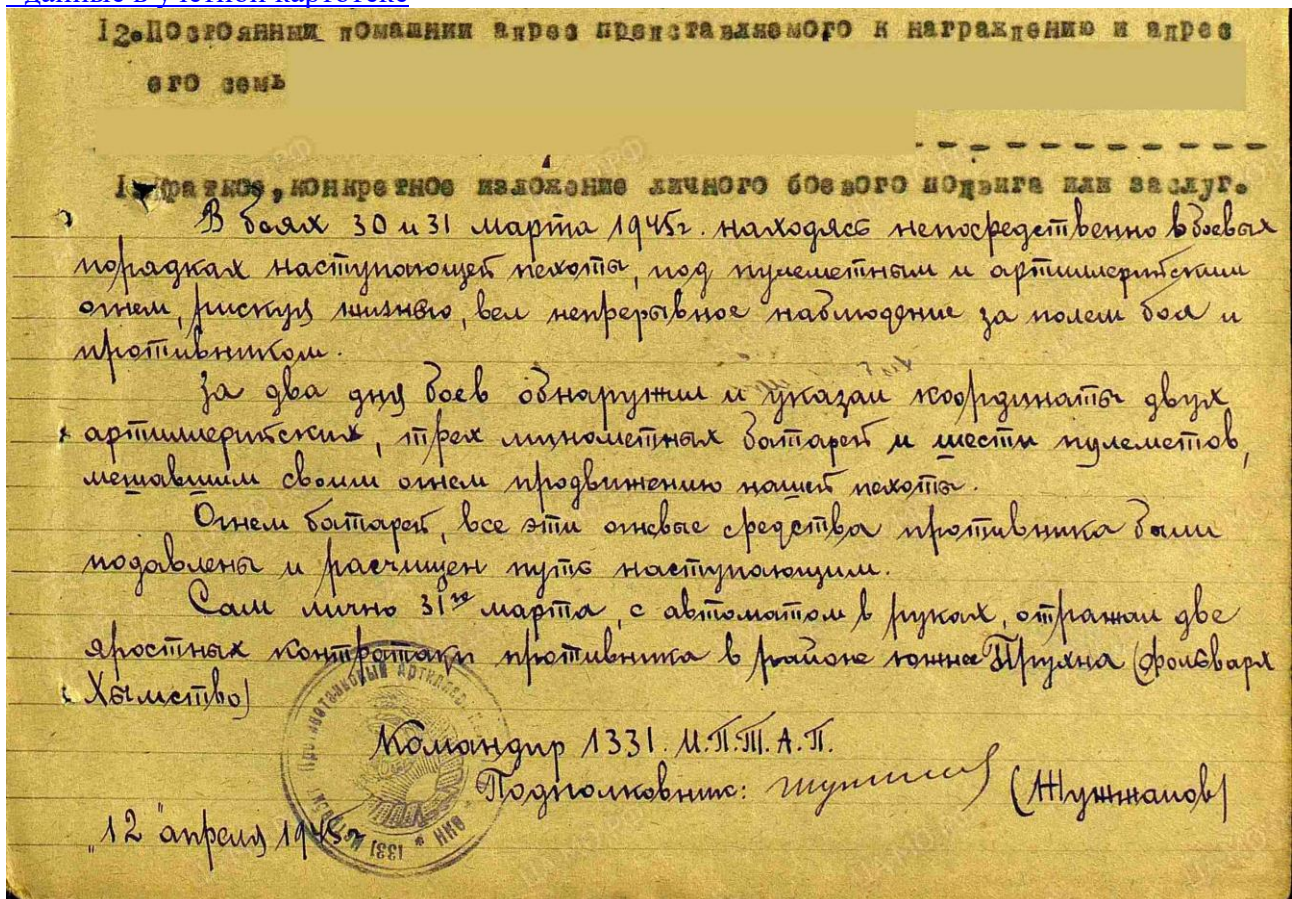 данные в учетной картотеке
12.Постоянный домашний адрес представляемого к награждению и адрес
его семь
1 Краткое,конкретное изложение личного боевого подвига или заслуг.
В боях 30 и 31 марта 1945г. находясь непосредственно в боевых
порядках наступающей пехоты, под пулеметным и артиллерийским
огнем, рискуя жизнью, вел непрерывное наблюдение за полем боя и
противником.
За два дня боев обнаружил и указал координаты двух
артиллерийских, трех минометных батарей и шести пулеметов,
мешавшим своим огнем продвижению нашей пехоты.
Огнем батарей, все эти огневые средства противника были
подавлены и расчищен путь наступающим.
Сам лично 31го марта, с автоматом в руках, отражал две
яростных контратаки противника в районе южнее Прухна (фольварк
Хылмство)
Командир 1331. И.П.Т.А.П.
Подполковник: (Жужманов)
"12" апреля 1945г
1331